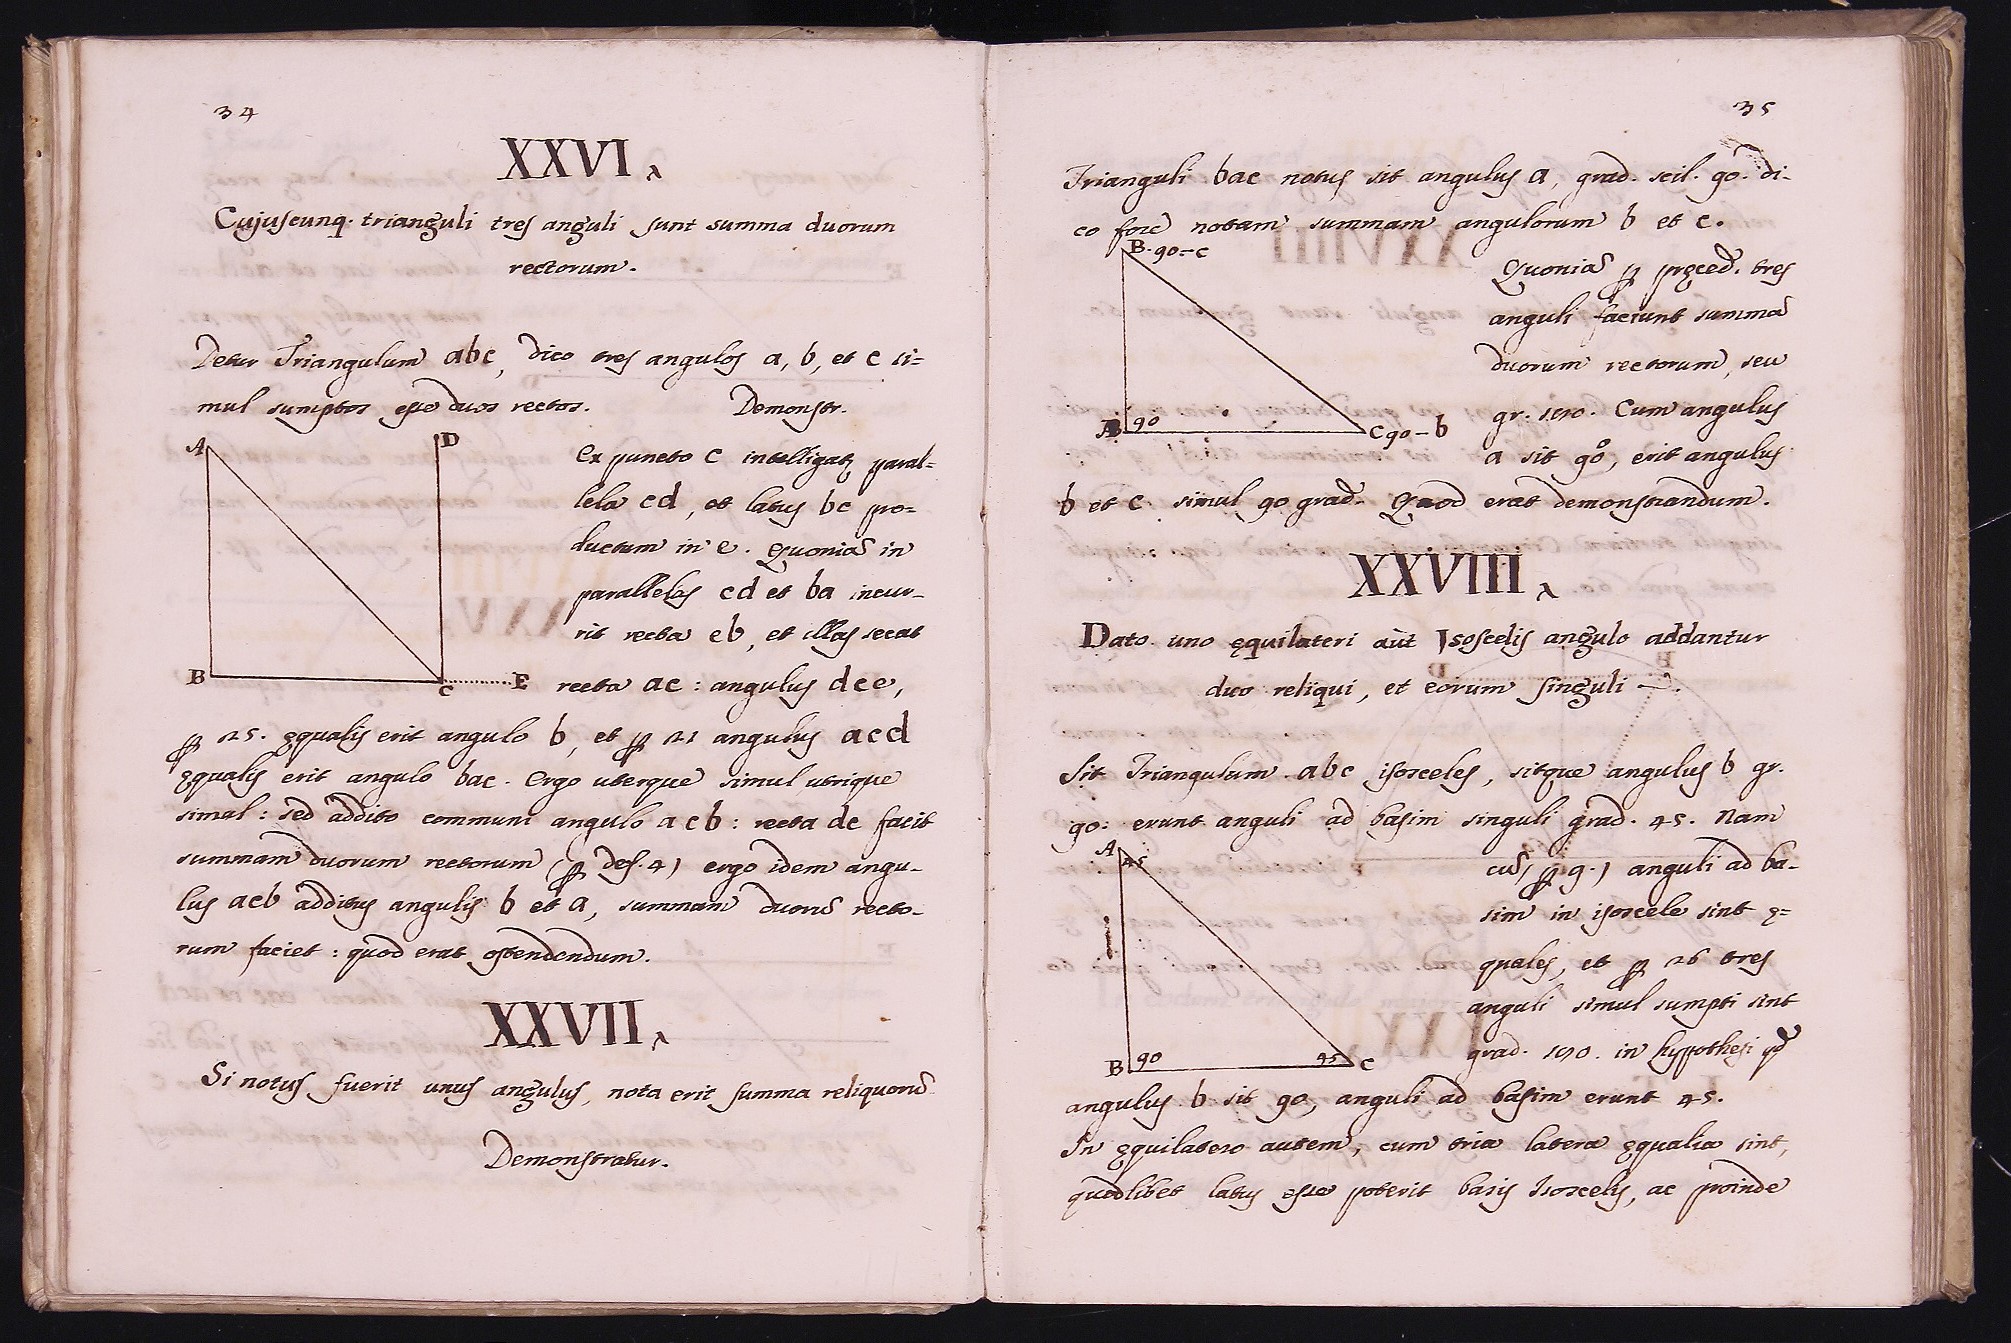 34
XXVI
Cujuscunq; trianguli tres anguli sunt summa duorum
rectorum.
Detur Triangulum abc, dico tres angulos a, b, et c si=
mul sumptos esse duos rectos. Demonstr.
A D
Ex puncto c intelligatʒ paral=
lela cd, et latus bc pro=
ductum in e. Quoniã in
parallelas cd et ba incur-
rit recta eb, et illas secat
B C E
recta ac: angulus dce,
ꝑ 25. ęqualis erit angulo b, et ꝑ 21 angulus acd
ęqualis erit angulo bac. Ergo uterque simul utrique
simul: sed addito communi angulo acb: recta dc facit
summam duorum rectorum (ꝑ def. 4) ergo idem angu-
lus acb additus angulis b et a, summam duorũ recto-
rum faciet: quod erat ostendendum.
XXVII
Si notus fuerit unus angulus, nota erit summa reliquorũ
Demonstratur.
35
Trianguli bac notus sit angulus a, grad. scil. 90. di-
co fore notam summam angulorum b et c.
B. 90-c
Quoniã ꝑ pręced. tres
anguli faciunt summã
duorum rectorum, seu
gr. 180. Cum angulus
90
C 90-b
a sit 90, erit angulus
b et c simul 90 grad. Quod erat demonstrandum.
XXVIII
Dato uno ęquilateri aut Isoscelis angulo addantur
duo reliqui, et eorum singuli
Sit Triangulum abc isosceles, sitque angulus b gr.
90: erunt anguli ad basim singuli grad. 45. Nam
A
45
cũ, ꝑ 9.) anguli ad ba-
sim in isoscele sint ę=
quales, et ꝑ 26 tres
anguli simul sumpti sint
grad. 180. in hypothesi qd
B 90 45 C
angulus b sit 90, anguli ad basim erunt 45.
In ęquilatero autem, cum tria latera ęqualia sint,
quodlibet latus esse poterit basis Isoscelis, ac proinde